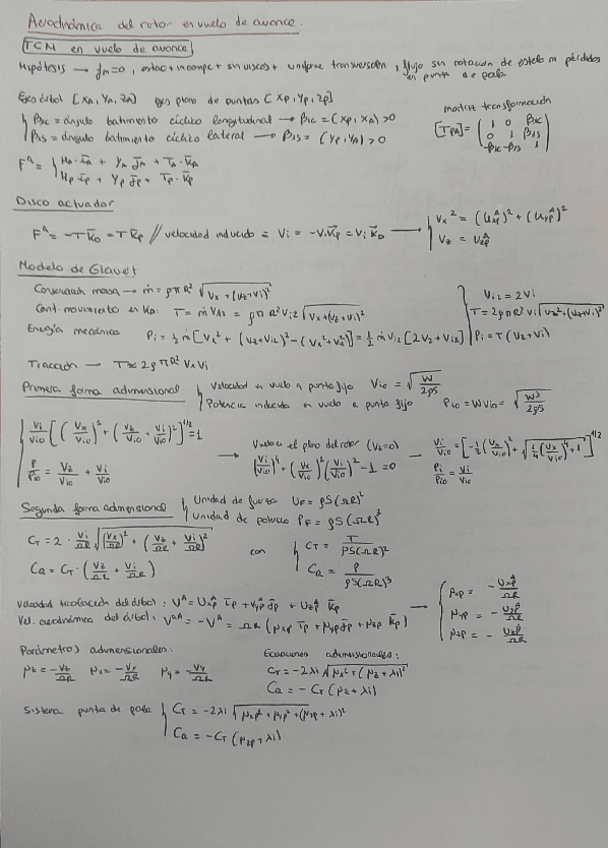 Aerodinámica del rotor en vuelo de avance.
TCM en vuelo de avance
Hipótesis → fm=0, estac + incompr + sin viscos + uniforme transversalm, flujo sin rotacion de estela ni pérdidas en punta de pala
Ejes árbol [XA, YA, ZA] ejes plano de puntas [XP, YP, ZP]
β1C = ángulo batimiento cíclico longitudinal → β1C = (XP, XA) >0
β1S = ángulo batimiento cíclico lateral → β1S = (YP, YA) >0
matriz transformación
[TPA] = ( 1 0 β1C
0 1 β1S
-β1C -β1S 1 )
F^a = { HA·īA + YA j̄A + TA·k̄A
HP īP + YP j̄P + TP·k̄P
Disco actuador
F^a = -T k̄D = T k̄P // velocidad inducida = Vi = -Vi k̄P = Vi k̄D → { Vx² = (U^A_XP)² + (U^A_YP)²
Vz = U^A_ZP
Modelo de Glauert
Conservación masa → ṁ = ρπR² √(Vx + (Vz+Vi)²)
Cant. movimiento en kD: T = ṁ Vi2 = ρπR² Vi2 √(Vx+(Vz+Vi)²)
Energía mecánica Pi = ½ ṁ [Vx² + (Vz+Vi2)² - (Vx²+Vz²)] = ½ ṁ Vi2 [2Vz + Vi2]
Vi2 = 2Vi
T = 2ρπR² Vi √(Vx²+(Vz+Vi)²)
Pi = T(Vz+Vi)
Tracción → T≈2ρπR² Vx Vi
Primera forma adimensional { Velocidad en vuelo a punto fijo Vi0 = √(W/2ρS)
Potencia inducida en vuelo a punto fijo Pi0 = W Vi0 = √(W³/2ρS)
Vi/Vi0 [(Vx/Vi0)² + (Vz/Vi0 + Vi/Vi0)²]^1/2 = 1
P/Pi0 = Vz/Vi0 + Vi/Vi0
→ Vuelo en el plano del rotor (Vz=0)
(Vi/Vi0)⁴ + (Vx/Vi0)² (Vi/Vi0)² - 1 = 0
→ Vi/Vi0 = [-½(Vx/Vi0)² + √(¼(Vx/Vi0)⁴ + 1)]^1/2
Pi/Pi0 = Vi/Vi0
Segunda forma adimensional { Unidad de fuerza UF = ρS(ΩR)²
Unidad de potencia PF = ρS(ΩR)³
CT = 2·Vi/ΩR √((Vx/ΩR)² + (Vz/ΩR + Vi/ΩR)²)
CQ = CT·(Vz/ΩR + Vi/ΩR)
con { CT = T/ρS(ΩR)²
CQ = P/ρS(ΩR)³
Velocidad traslación del árbol: V^A = U^A_XP īP + V^A_YP j̄P + U^A_ZP k̄P
Vel. aerodinámica del árbol: V^aA = -V^A = ΩR (μXP īP + μYP j̄P + μZP k̄P)
→ { μXP = - U^A_XP/ΩR
μYP = - U^A_YP/ΩR
μZP = - U^A_ZP/ΩR
Parámetros adimensionales:
μz = -Vz/ΩR μx = -Vx/ΩR μy = -Vy/ΩR
Ecuaciones adimensionales:
CT = -2λi √(μx² + (μz + λi)²
CQ = - CT (μz + λi)
Sistema punta de pala { CT = -2λi √(μxp² + μyp² + (μzp + λi)²
CQ = -CT (μzp + λi)